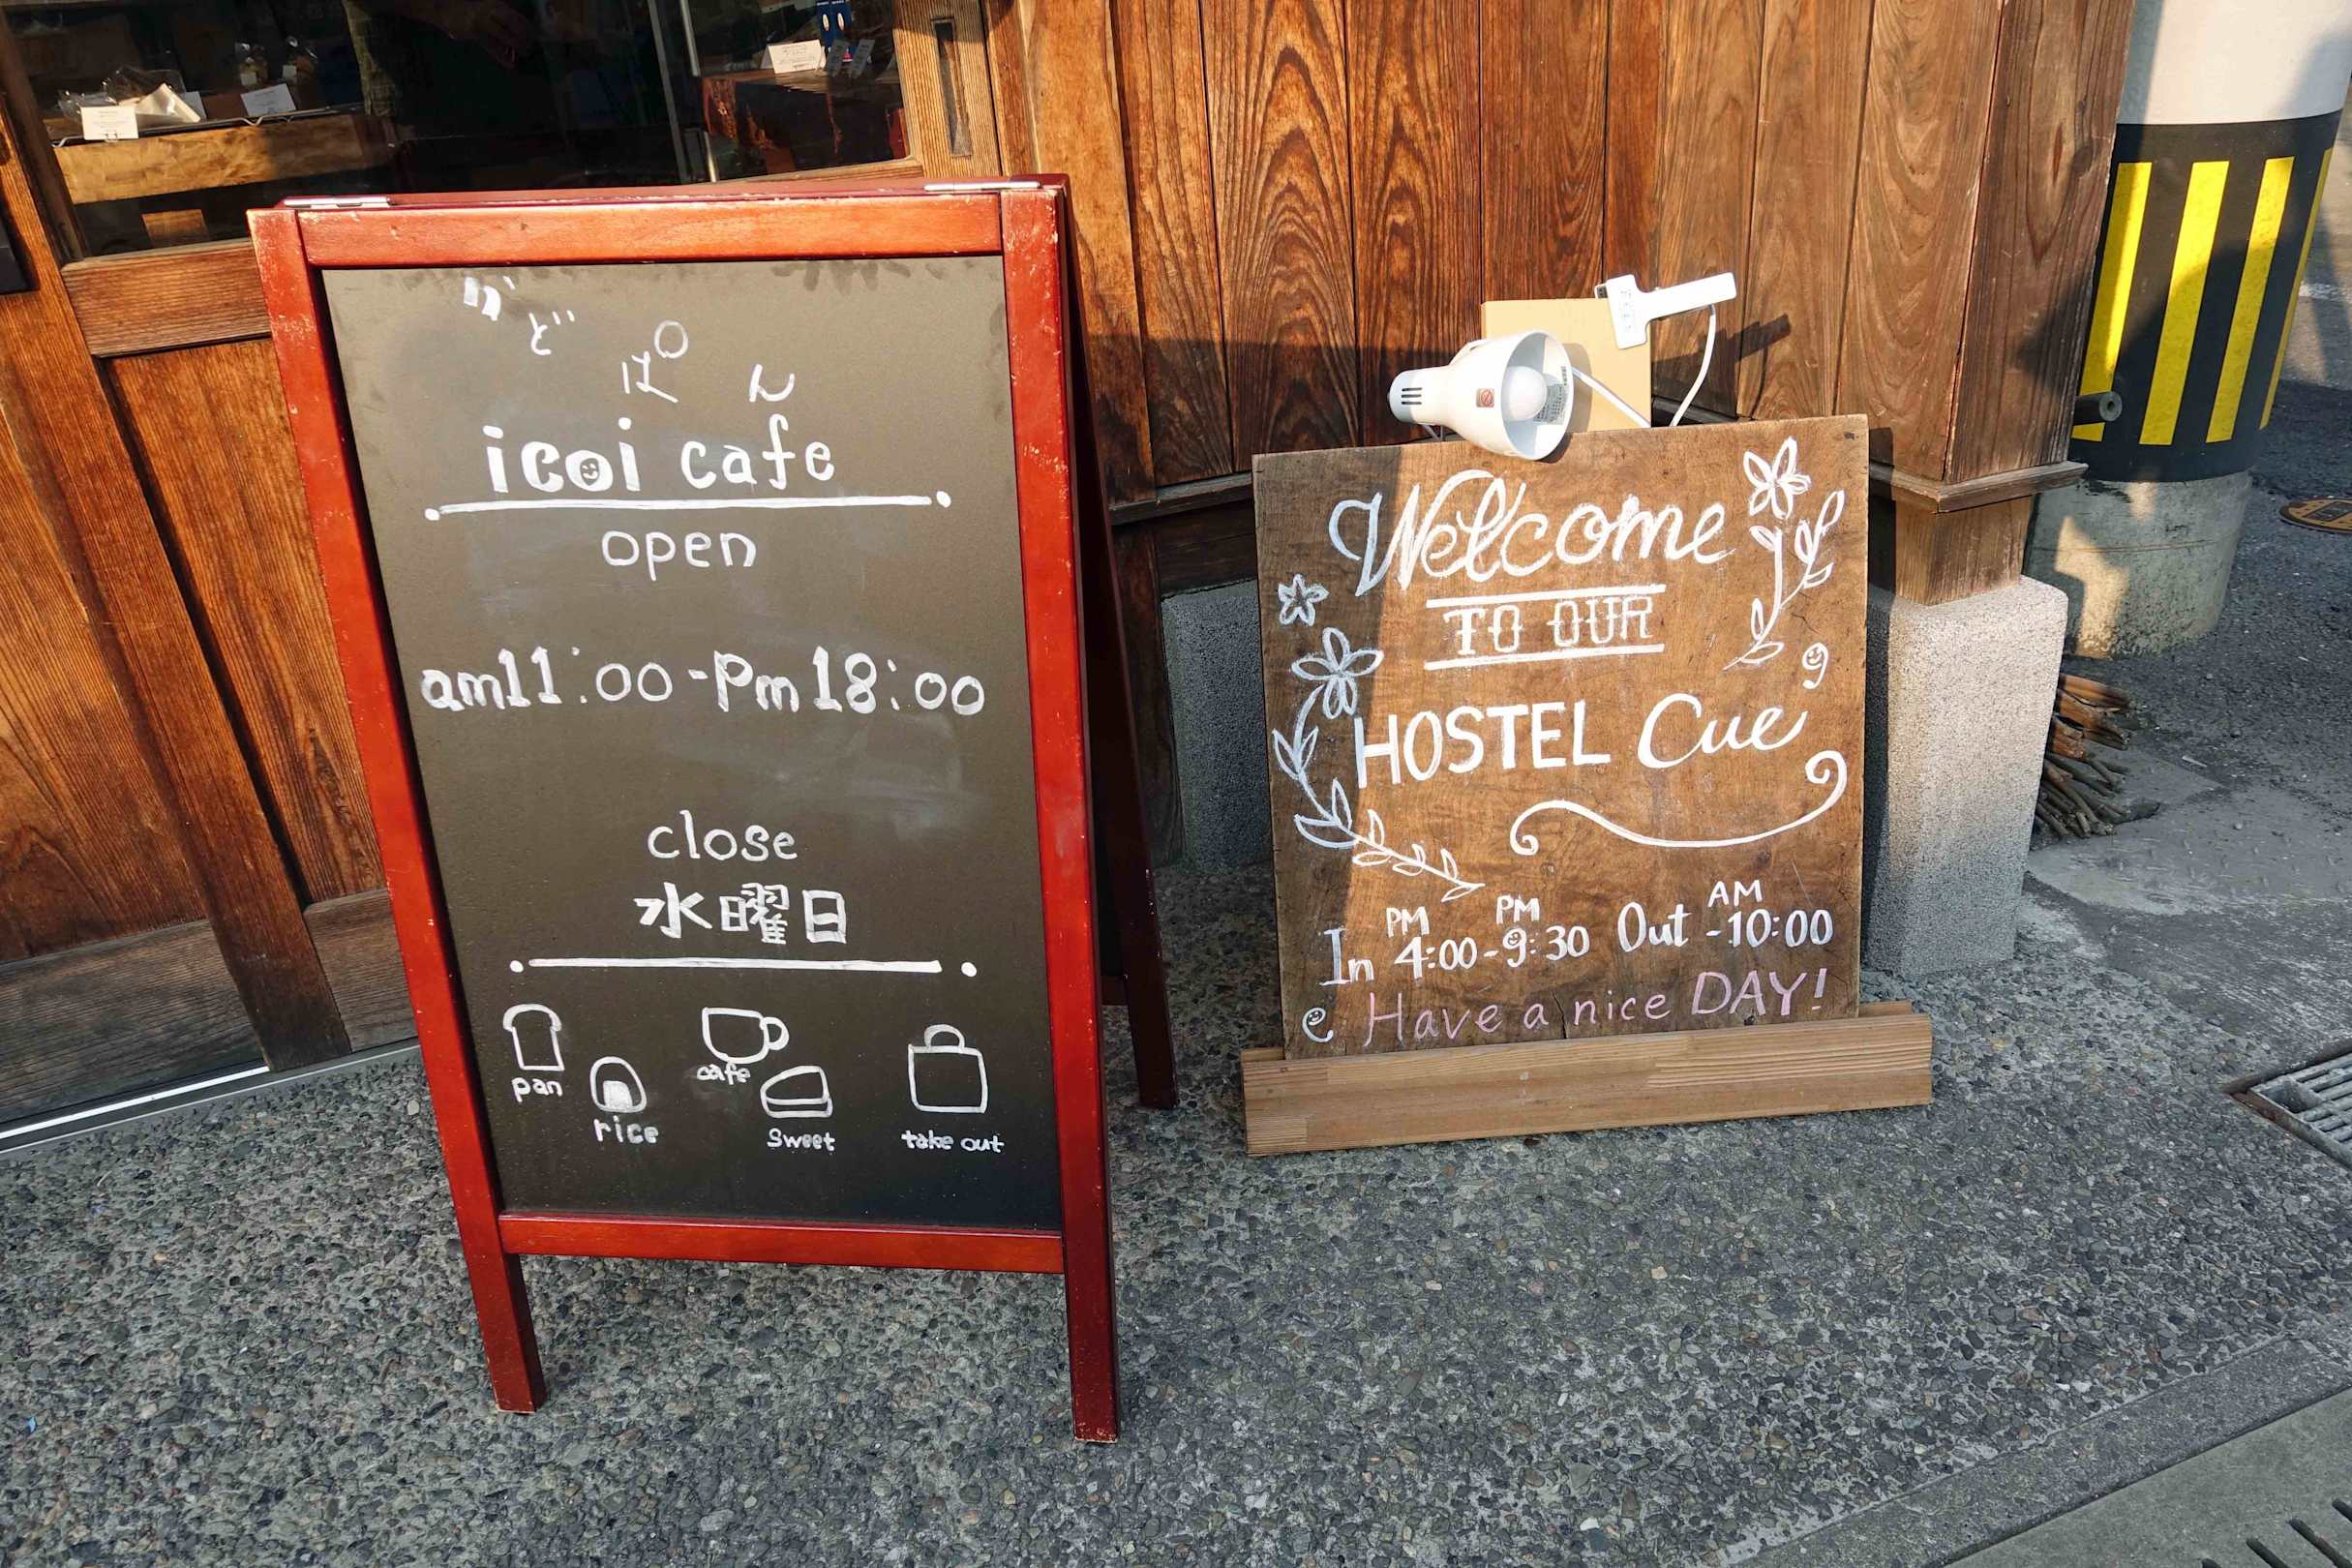 ど
ぱ
ん
icoi cafe
open
am11:00-Pm18:00
close
水曜日
pan
rice
cafe
sweet
take out
Welcome
TO OUR
HOSTEL Cue
In PM 4:00-PM 9:30 Out AM -10:00
Have a nice DAY!